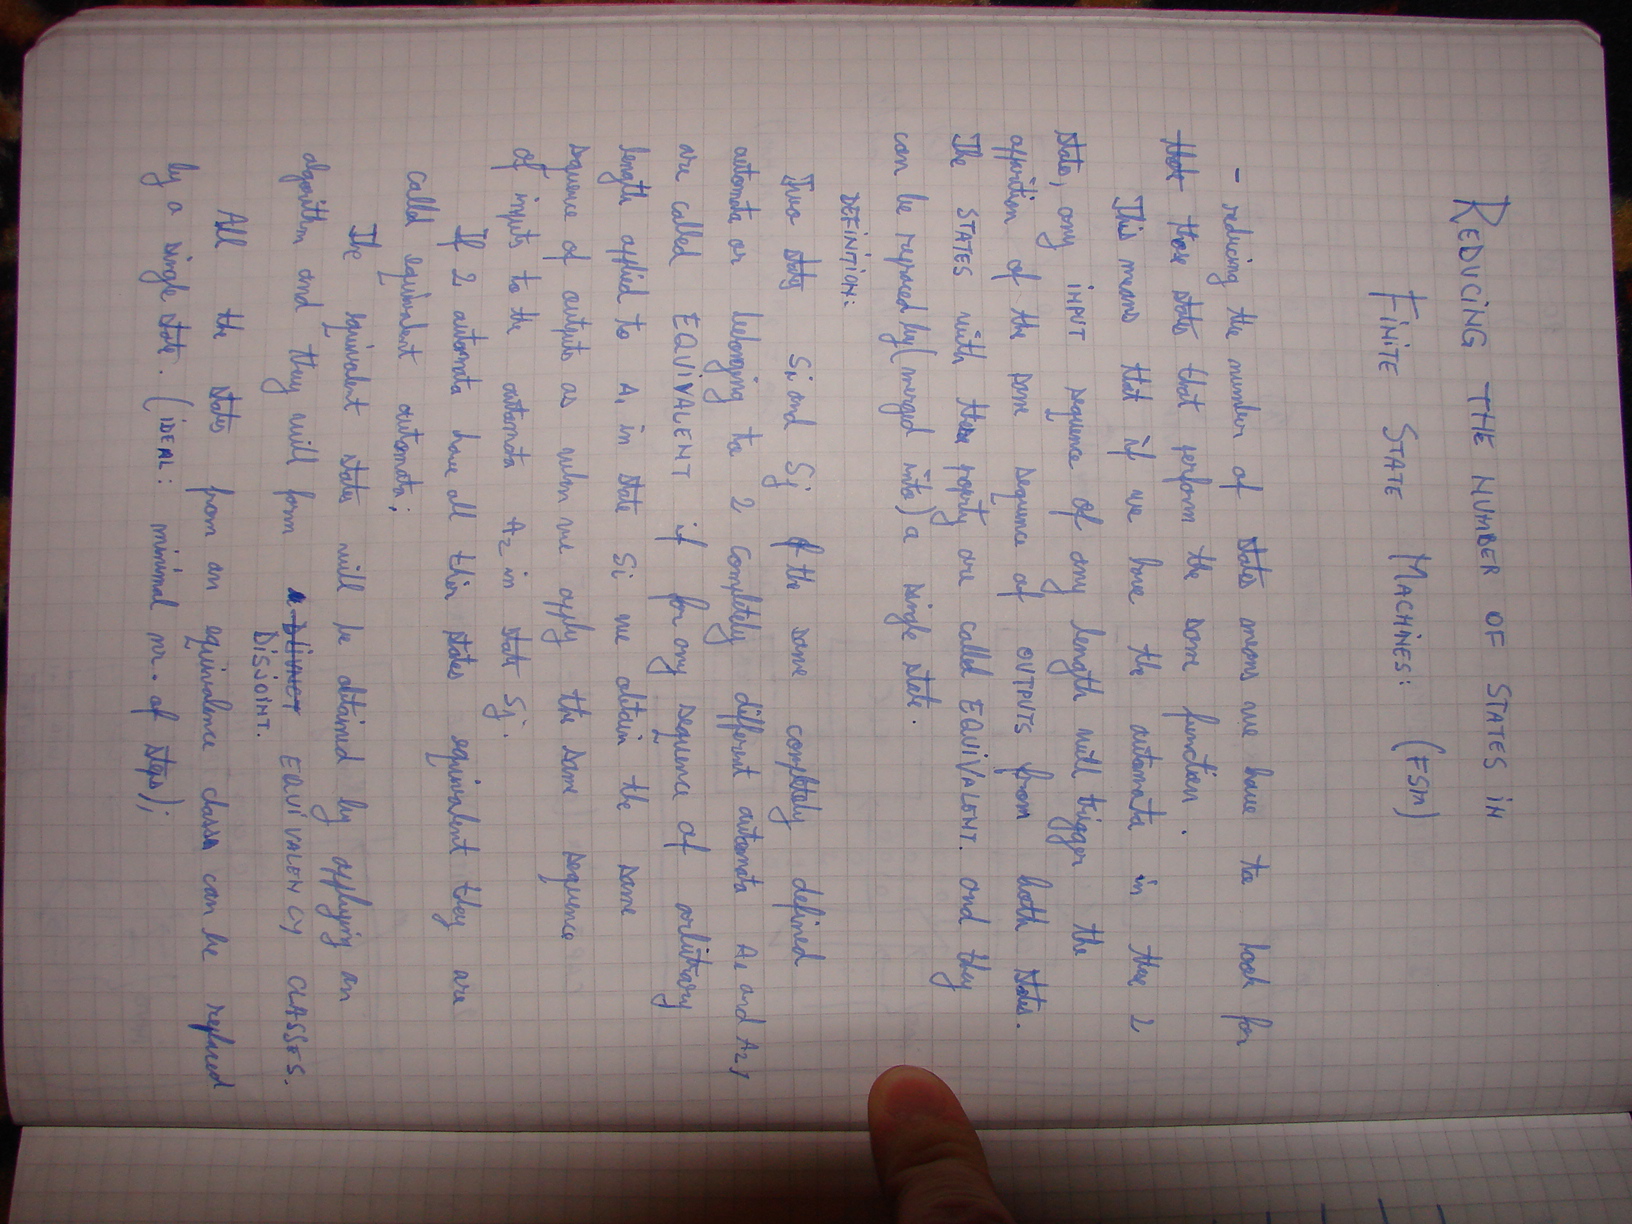 REDUCING THE NUMBER OF STATES IN
FINITE STATE MACHINES: (FSM)
- reducing the number of states means we have to look for
those states that perform the same function.
This means that if we have the automata in these 2
states, any INPUT sequence of any length will trigger the
apparition of the same sequence of OUTPUTS from both states.
The STATES with this property are called EQUIVALENT. and they
can be replaced by (merged into) a single state.
DEFINITION:
Two states Si and Sj of the same completely defined
automata or belonging to 2 completely different automata A1 and A2,
are called EQUIVALENT if for any sequence of arbitrary
length applied to A1 in state Si we obtain the same
sequence of outputs as when we apply the same sequence
of inputs to the automata A2 in state Sj.
If 2 automata have all their states equivalent they are
called equivalent automata;
The equivalent states will be obtained by applying an
algorithm and they will form EQUIVALENCY CLASSES.
DISJOINT.
All the states from an equivalence class can be replaced
by a single state. (IDEAL: minimal nr. of steps);